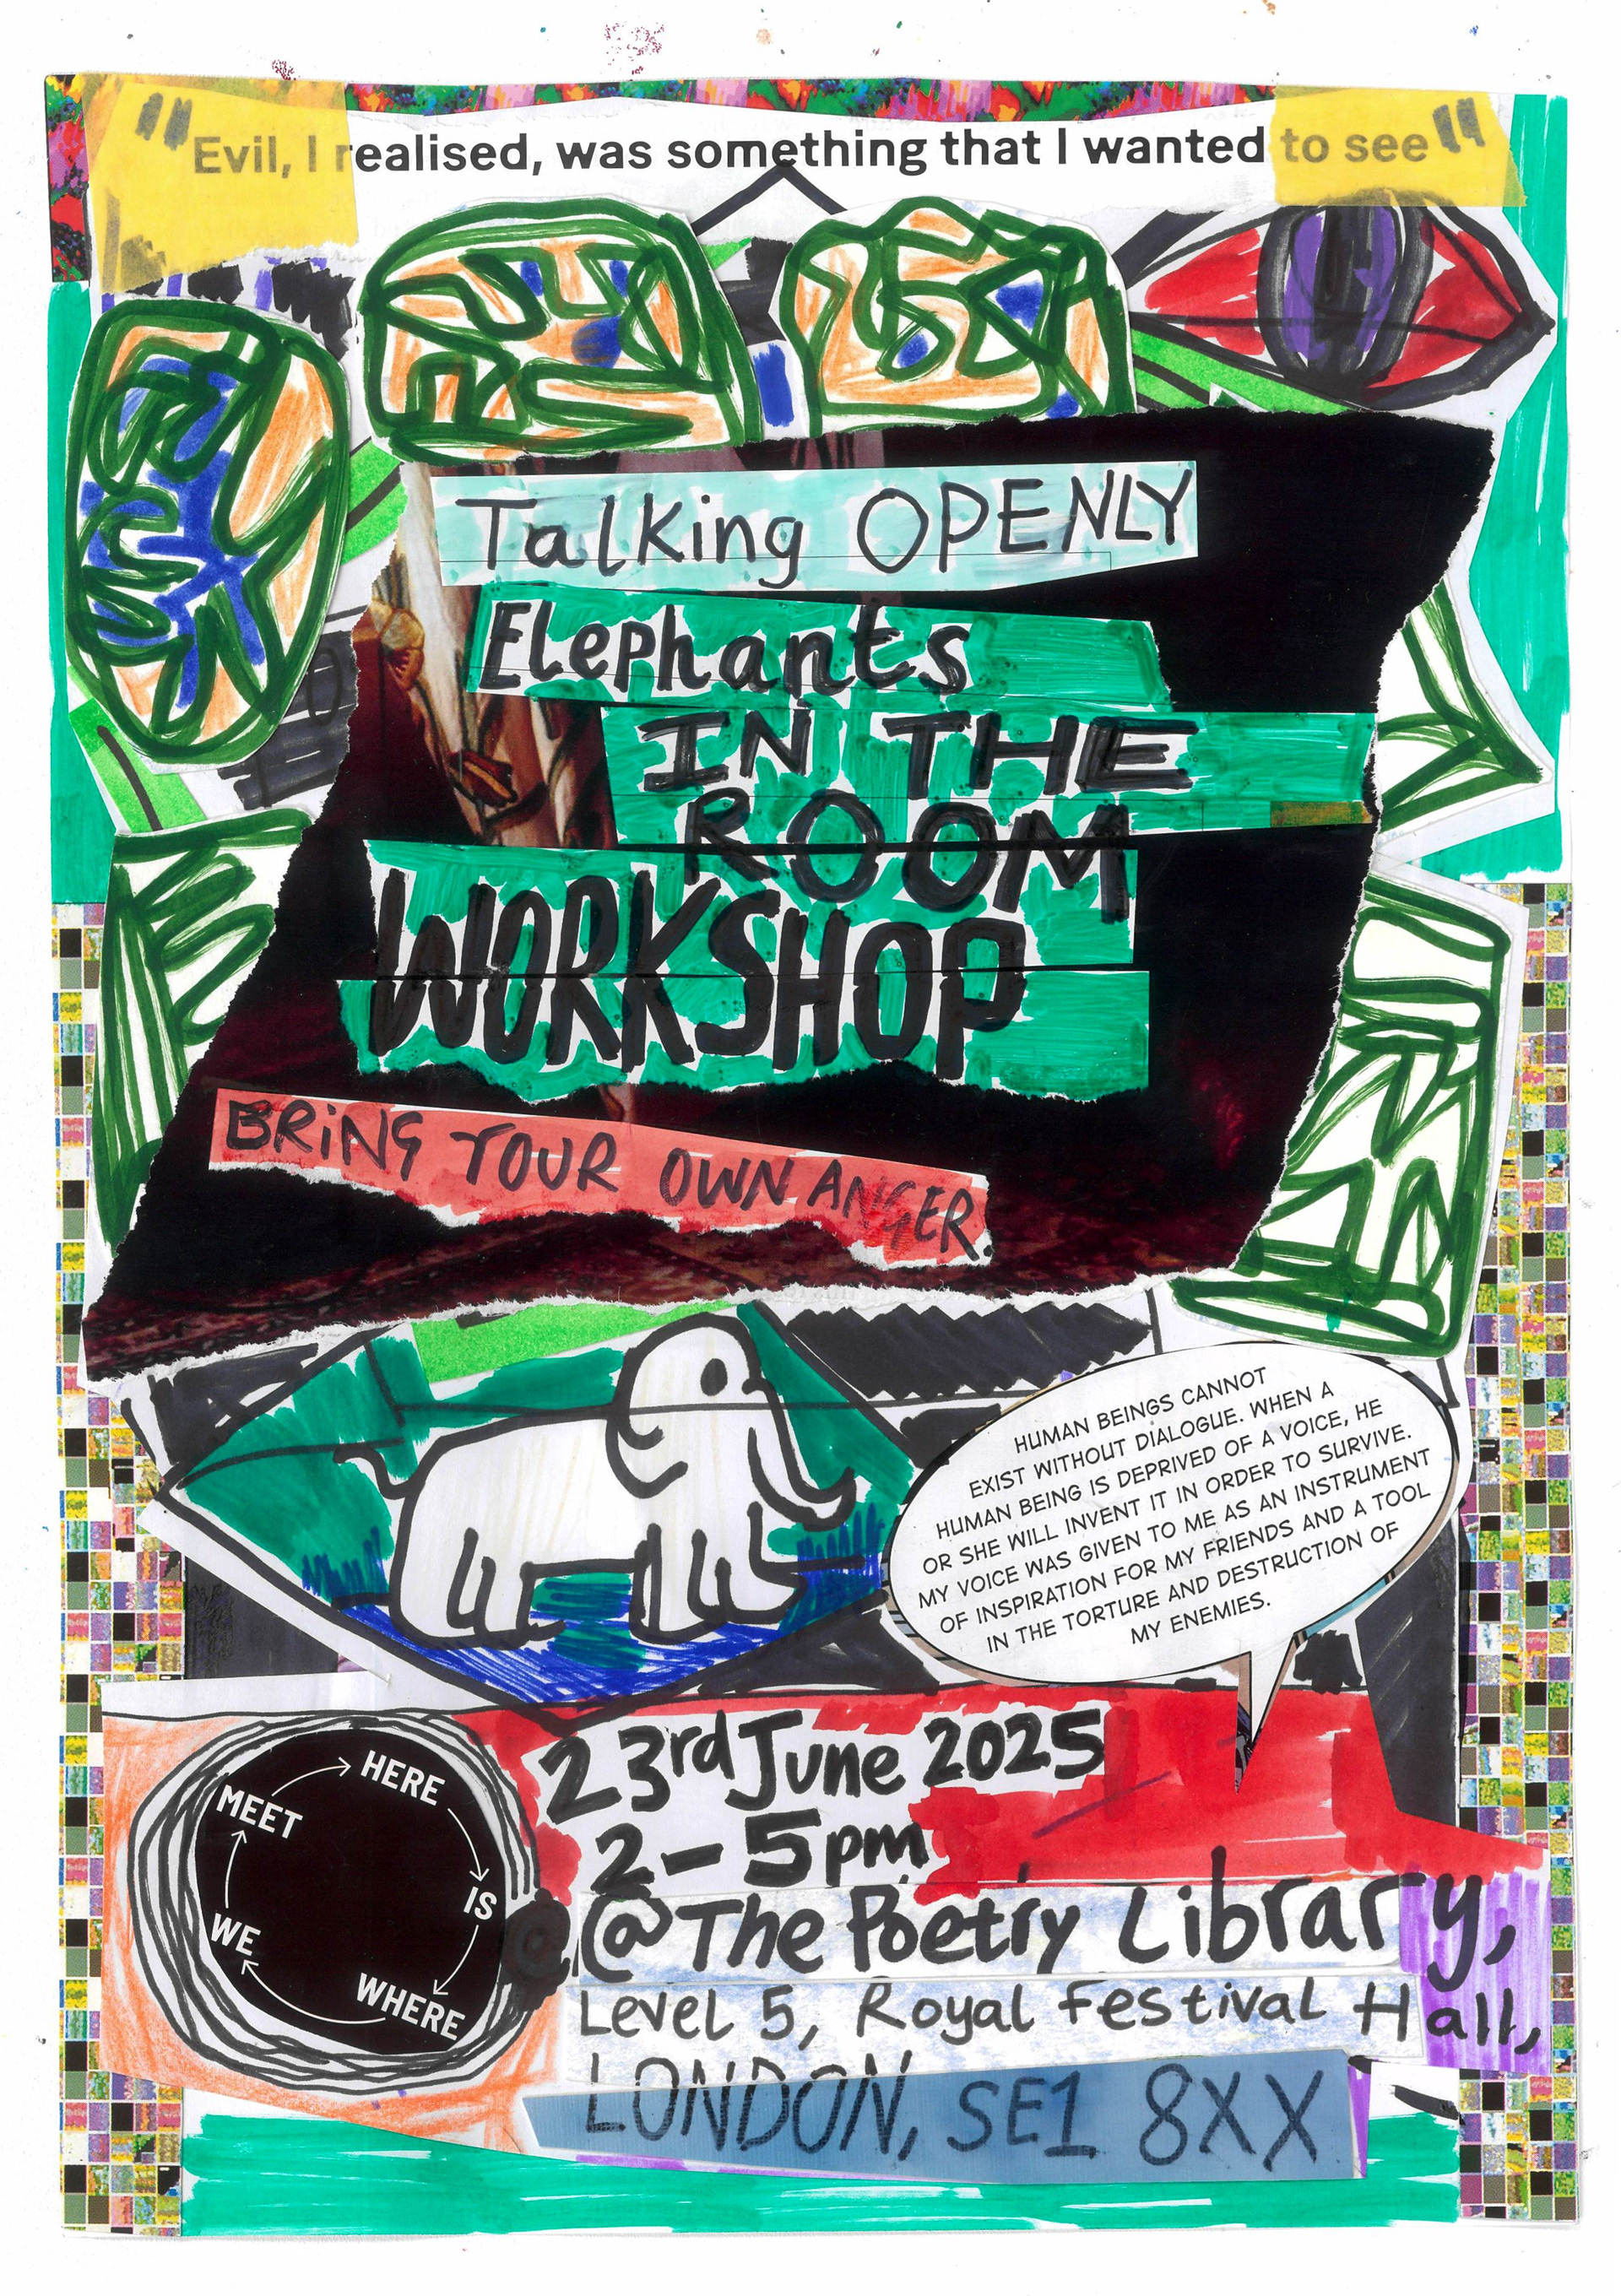 "Evil, I realised, was something that I wanted to see"
Talking OPENLY
Elephants
IN THE
ROOM
WORKSHOP
BRING YOUR OWN ANGER.
HUMAN BEINGS CANNOT
EXIST WITHOUT DIALOGUE. WHEN A
HUMAN BEING IS DEPRIVED OF A VOICE, HE
OR SHE WILL INVENT IT IN ORDER TO SURVIVE.
MY VOICE WAS GIVEN TO ME AS AN INSTRUMENT
OF INSPIRATION FOR MY FRIENDS AND A TOOL
IN THE TORTURE AND DESTRUCTION OF
MY ENEMIES.
HERE
IS
WHERE
WE
MEET
23rd June 2025
2-5pm
@The Poetry Library,
Level 5, Royal Festival Hall,
LONDON, SE1 8XX